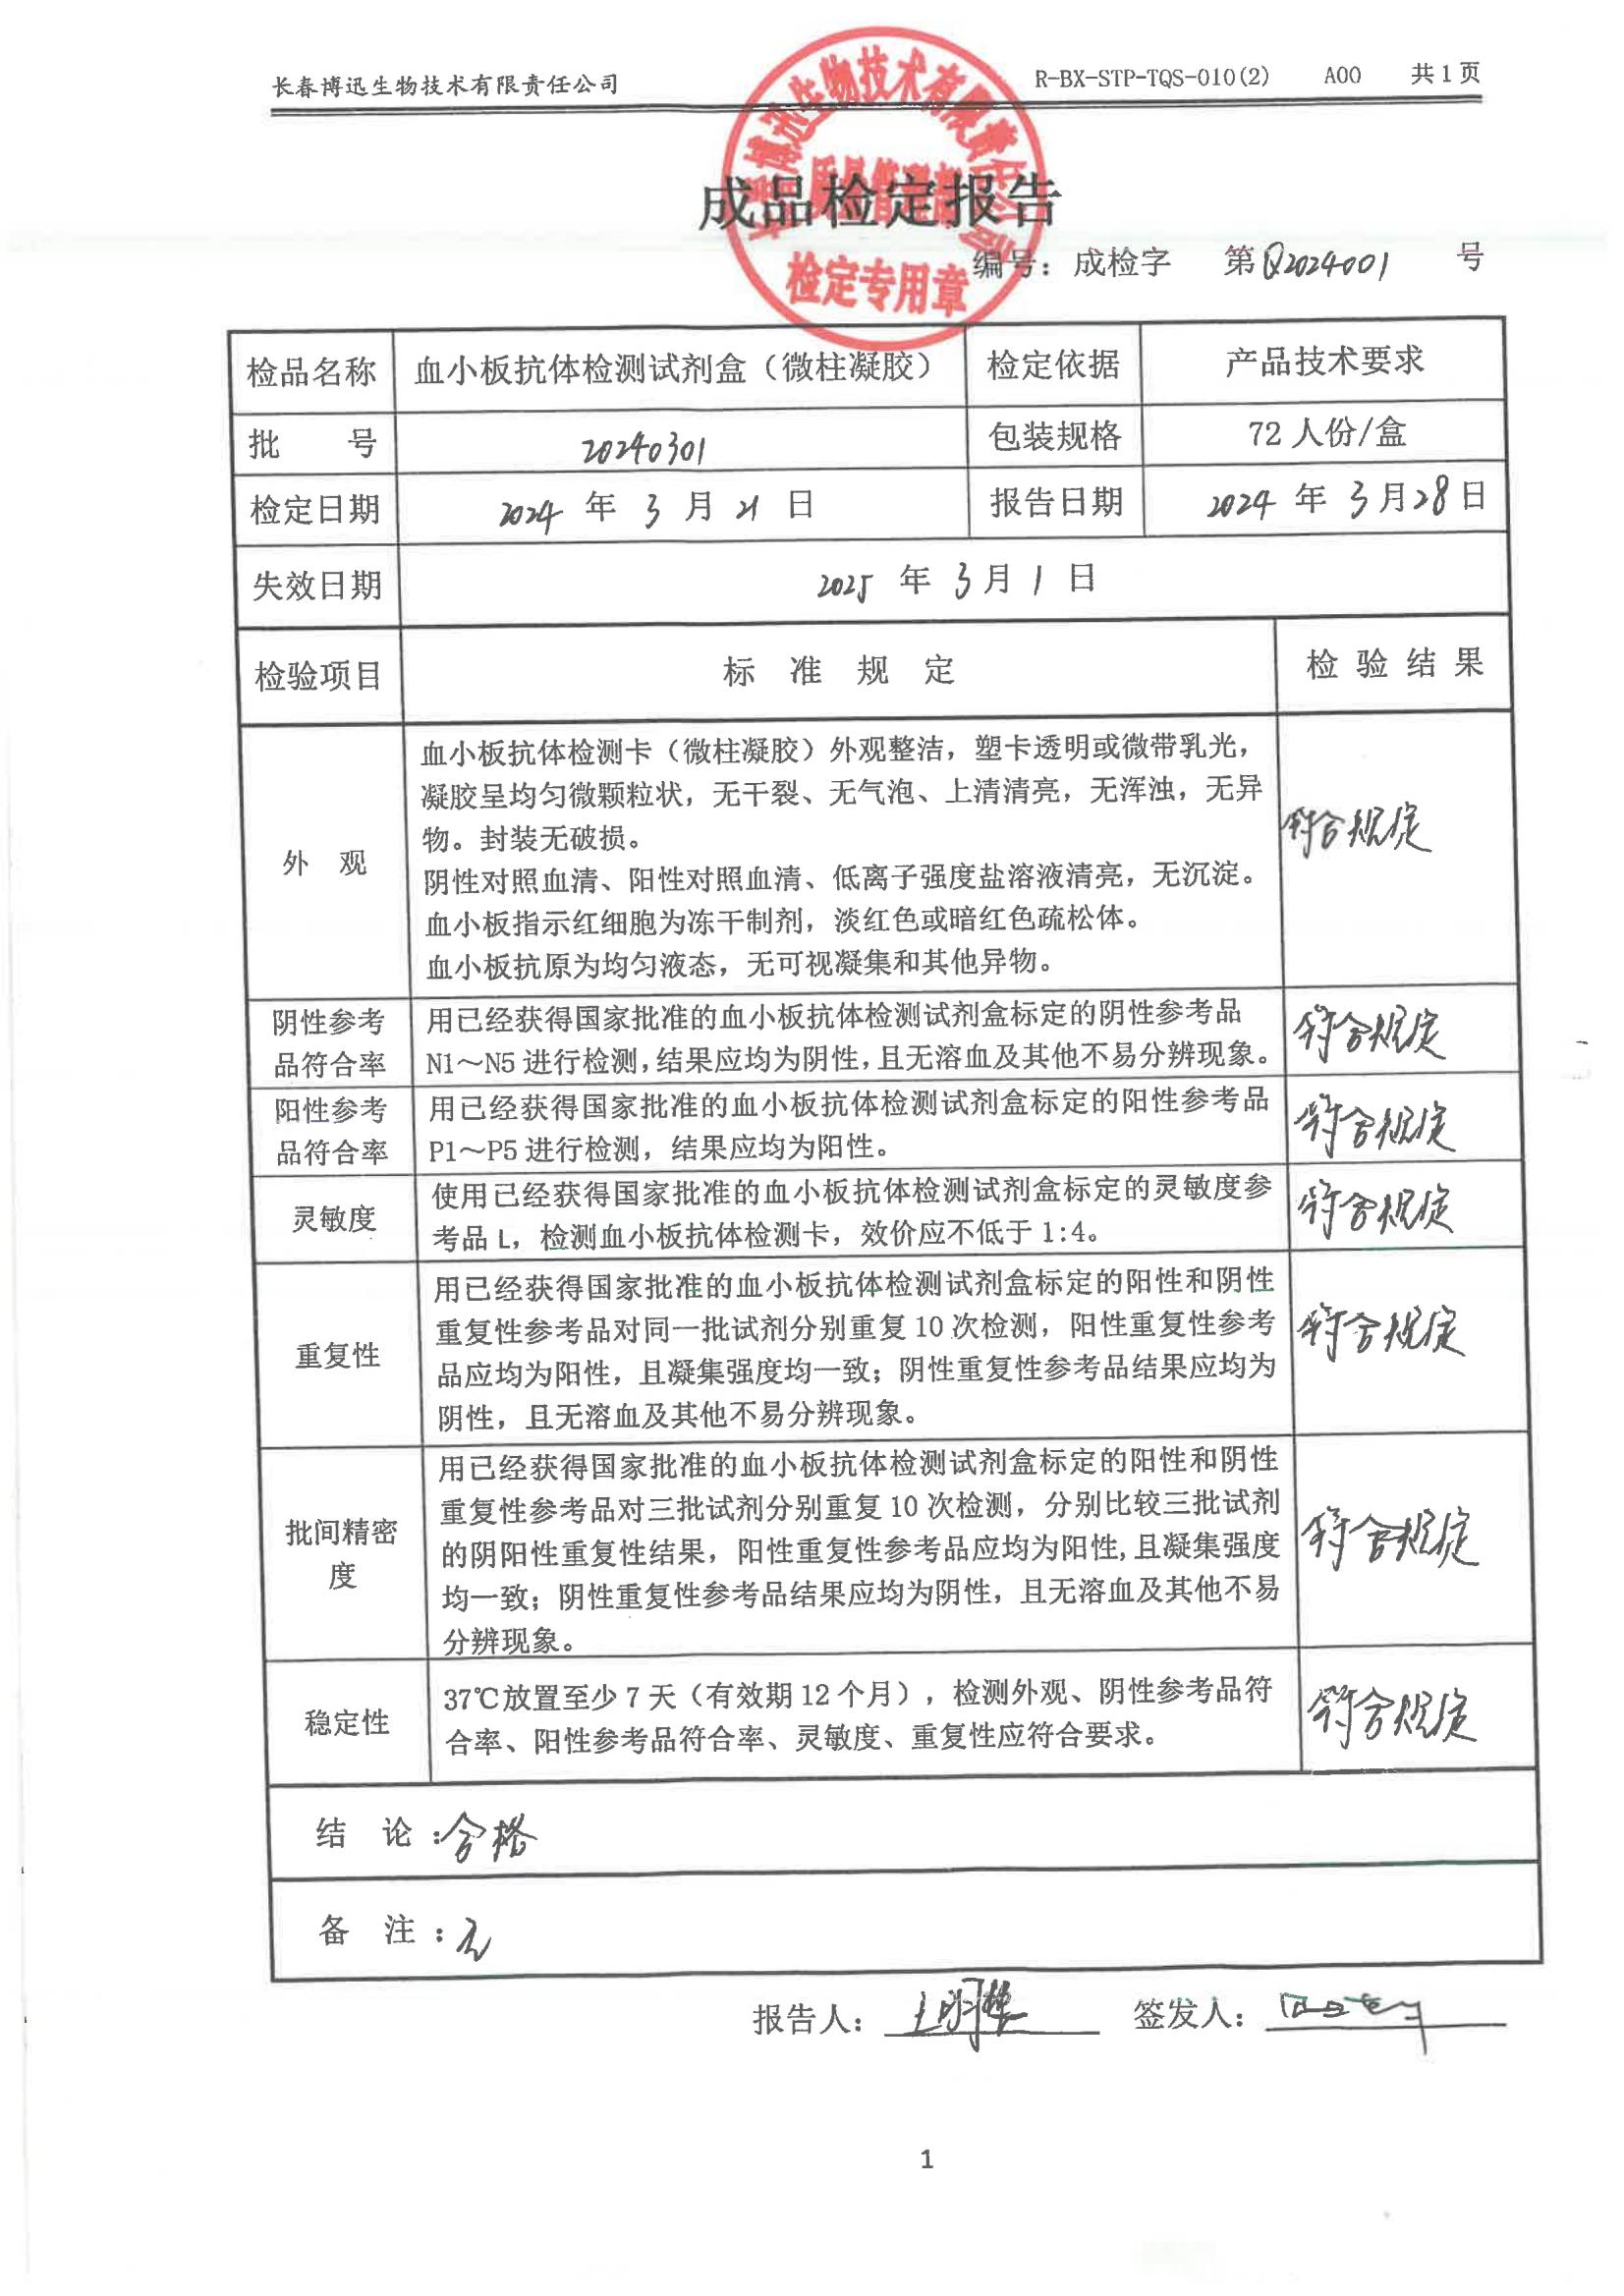 长春博迅生物技术有限责任公司 R-BX-STP-TQS-010(2) A00 共1页
长春博迅生物技术有限责任公司
质量管理部
检定专用章
成品检定报告
编号：成检字 第Q2024001 号
检品名称 血小板抗体检测试剂盒（微柱凝胶） 检定依据 产品技术要求
批 号 20240301 包装规格 72人份/盒
检定日期 2024 年 3 月 21 日 报告日期 2024 年 3 月 28 日
失效日期 2025 年 3 月 1 日
检验项目 标 准 规 定 检 验 结 果
外 观
血小板抗体检测卡（微柱凝胶）外观整洁，塑卡透明或微带乳光，
凝胶呈均匀微颗粒状，无干裂、无气泡、上清清亮，无浑浊，无异
物。封装无破损。
阴性对照血清、阳性对照血清、低离子强度盐溶液清亮，无沉淀。
血小板指示红细胞为冻干制剂，淡红色或暗红色疏松体。
血小板抗原为均匀液态，无可视凝集和其他异物。
符合规定
阴性参考
品符合率
用已经获得国家批准的血小板抗体检测试剂盒标定的阴性参考品
N1～N5进行检测,结果应均为阴性,且无溶血及其他不易分辨现象。
符合规定
阳性参考
品符合率
用已经获得国家批准的血小板抗体检测试剂盒标定的阳性参考品
P1～P5进行检测，结果应均为阳性。
符合规定
灵敏度
使用已经获得国家批准的血小板抗体检测试剂盒标定的灵敏度参
考品L，检测血小板抗体检测卡，效价应不低于1:4。
符合规定
重复性
用已经获得国家批准的血小板抗体检测试剂盒标定的阳性和阴性
重复性参考品对同一批试剂分别重复10次检测，阳性重复性参考
品应均为阳性，且凝集强度均一致；阴性重复性参考品结果应均为
阴性，且无溶血及其他不易分辨现象。
符合规定
批间精密
度
用已经获得国家批准的血小板抗体检测试剂盒标定的阳性和阴性
重复性参考品对三批试剂分别重复10次检测，分别比较三批试剂
的阴阳性重复性结果，阳性重复性参考品应均为阳性,且凝集强度
均一致；阴性重复性参考品结果应均为阴性，且无溶血及其他不易
分辨现象。
符合规定
稳定性
37℃放置至少7天（有效期12个月），检测外观、阴性参考品符
合率、阳性参考品符合率、灵敏度、重复性应符合要求。
符合规定
结 论：合格
备 注：无
报告人： 签发人：
1